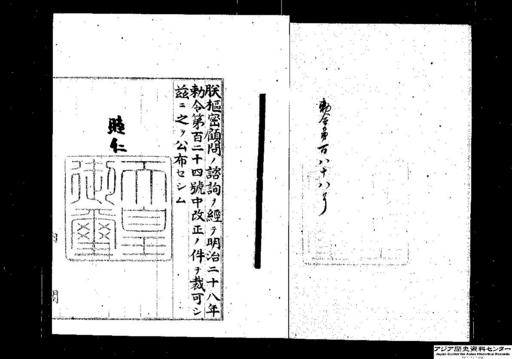 勅令第百八十八号
朕樞密顧問ノ諮詢ヲ經テ明治二十八年
勅令第百二十四號中改正ノ件ヲ裁可シ
茲ニ之ヲ公布セシム
睦仁
天皇
御璽
アジア歴史資料センター
Japan Center for Asian Historical Records